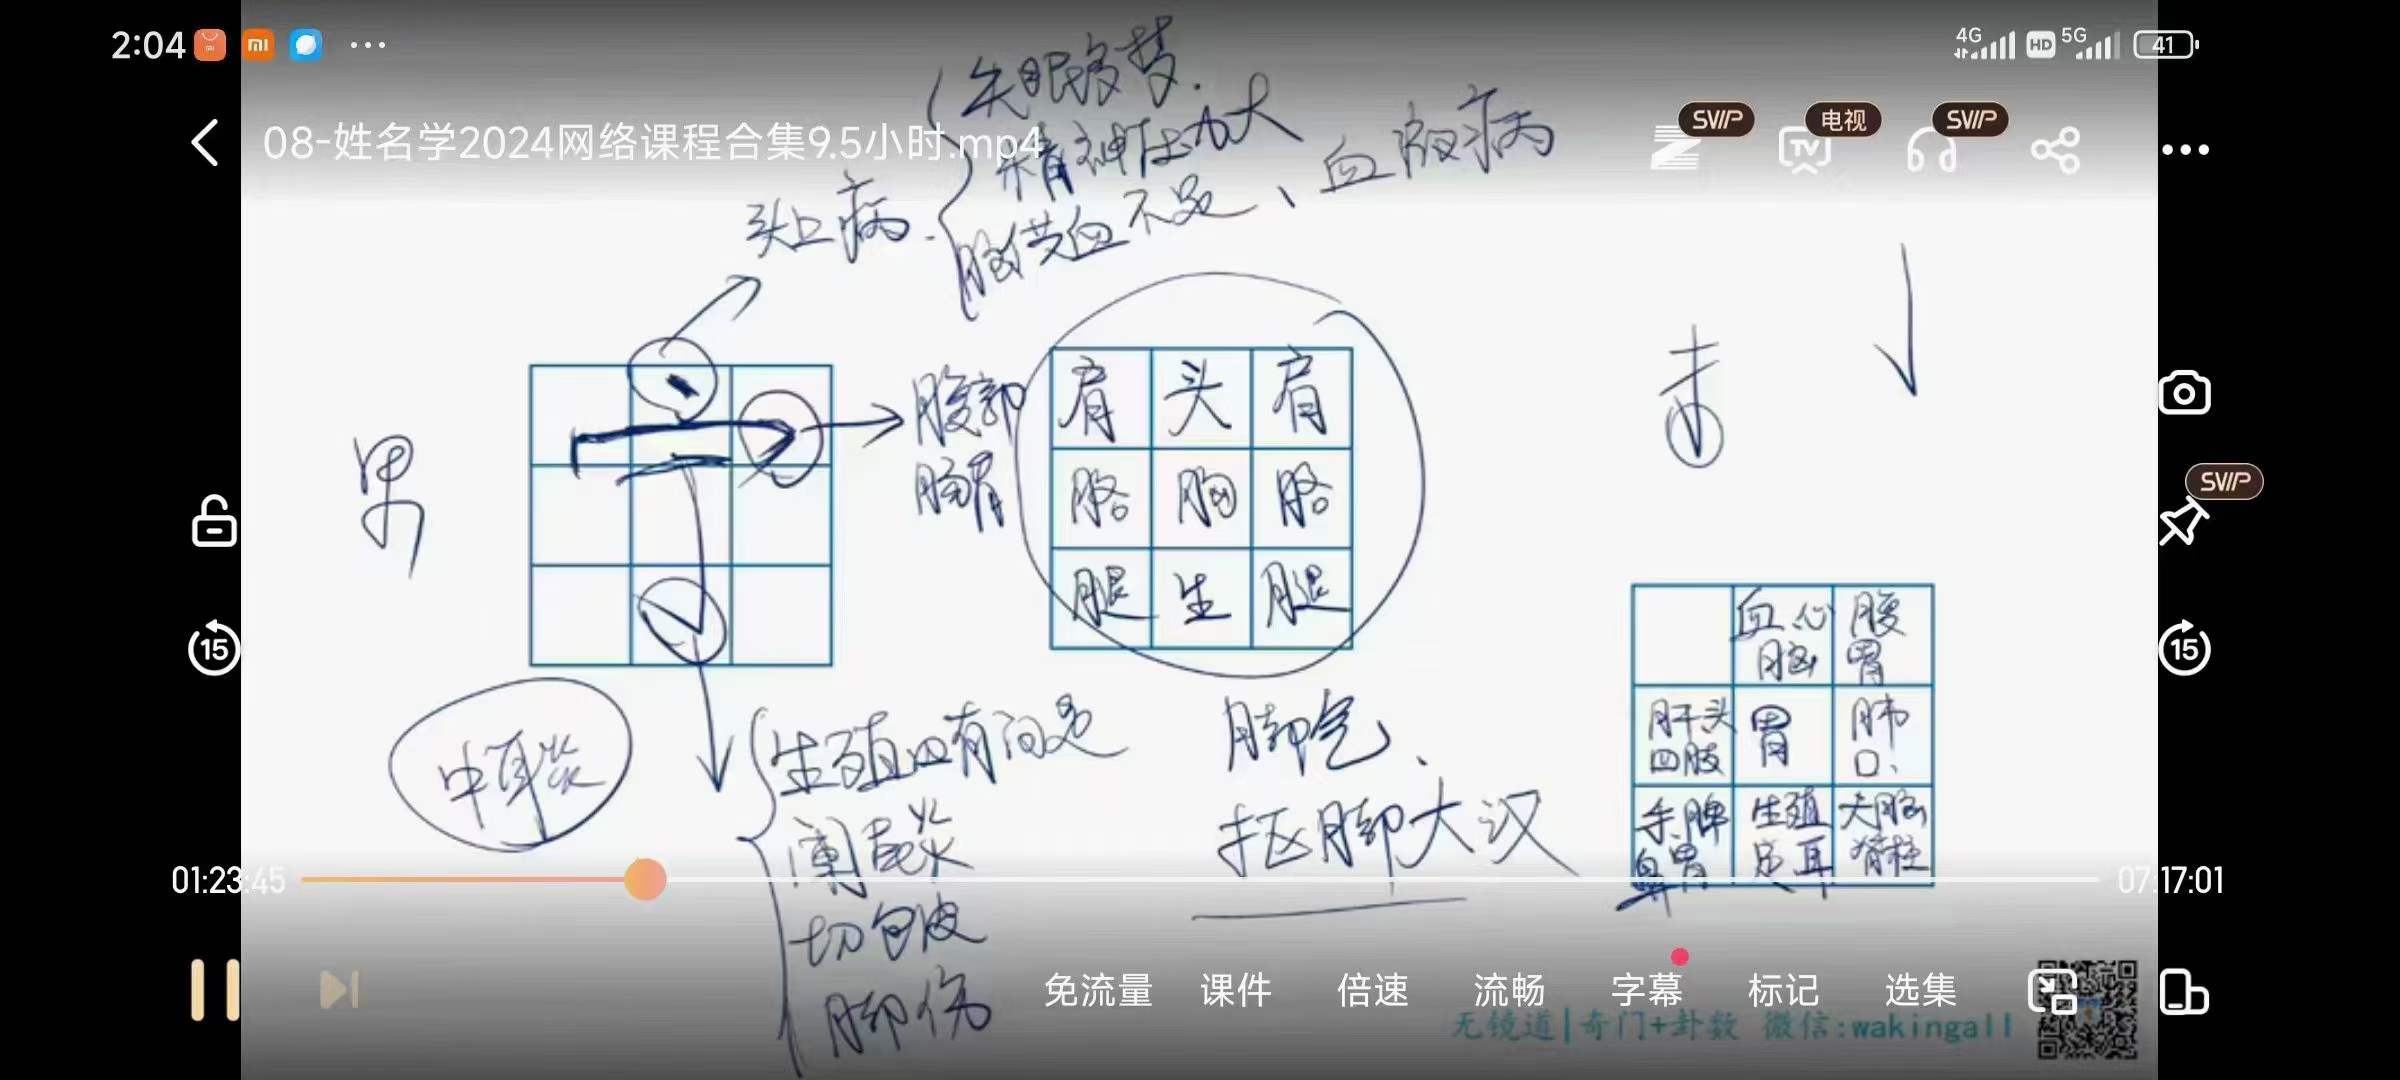 2:04
4G HD 5G 41
08-姓名学2024网络课程合集9.5小时.mp4
SVIP 电视 SVIP
TV
失眠多梦.
精神压力大
脑供血不足、血液病
头上病.
男
腹部
肠胃
肩 头 肩
胳 胸 胳
腿 生 腿
SVIP
15
15
血 心 腹
脑 胃
肝头 胃 肺
四肢 口、
手脾 生殖 大脑
鼻胃 足耳 脊柱
中耳炎
生殖四有问题
阑尾炎
切包皮
脚伤
脚气、
抠脚大汉
01:23:45
07:17:01
免流量 课件 倍速 流畅 字幕 标记 选集
无镜道|奇门+卦数 微信:wakingall